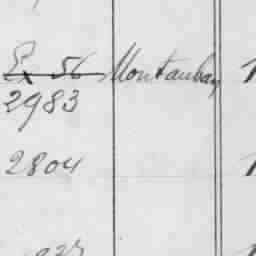 Ex 56 Montauban
2983
2804